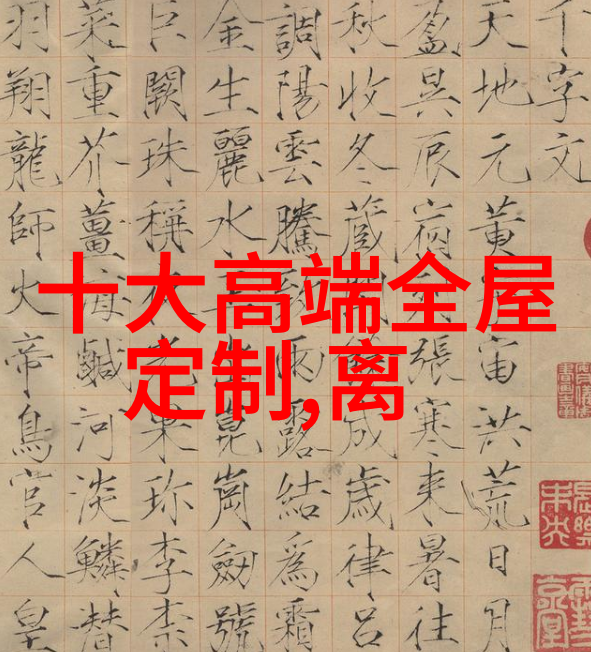 十大高端全屋
定制,离
千字文
天地元黄宙洪荒日月
盈昃辰宿列張寒来暑往
秋收冬蔵成歳律吕
調陽雲騰雨露結為霜
金生麗水崑崗劒號
巨闕珠稱光果珍李柰
菜重芥薑海鹹河淡鱗潜
羽翔龍師火帝鳥官人皇